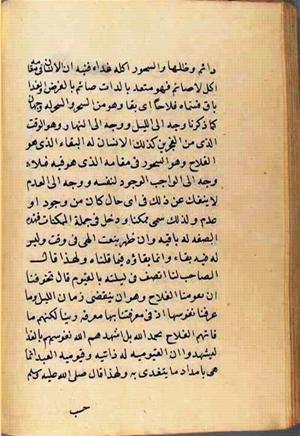 دائم وظلها والسحور اكله غداء فنبه ان الانسان في بقا
اكل لا صائم فهو متعد بالذات صائم بالعرض الغذا
باق فسماه فلاحا اى بقا وهو من السحر والسحر له وجهان
كما ذكرنا وجه الى الليل ووجه الى النهار وهو الوقت
الذى من الفجرين كذلك الانسان له البقاء الذى هو
الفلاح وهو السحور فى مقامه الذى هو فيه فله
وجه الى الواجب الوجود لنفسه ووجه الى العدم
لا ينفك عن ذلك فى اى حال كان من وجود او
عدم ولذلك سمى ممكنا ودخل فى جملة الممكنات فهذه
الصفه له باقيه وان ظهر بنعت الهى فى وقت وليس
له فيه بقاء وانما بقاؤه فيما قلناه ولهذا قال
الصاحب لما اتصف فى ليلته بالقيوم قال تخوفنا
ان يفوتنا الفلاح وهو ان ينقضى زمان الليل وما
عرفنا نفوسنا اذ فى معرفتنا بها معرفه ربنا لكنهم ما
فاتهم الفلاح بحمد الله بل اشهدهم الله نفوسهم بالغذا
ليشهدوا ان القيوميه له ذاتيه وقيوميه العبد انما
هى بامداد ما يتغذى به ولهذا قال صلى الله عليه وسلم
حسب